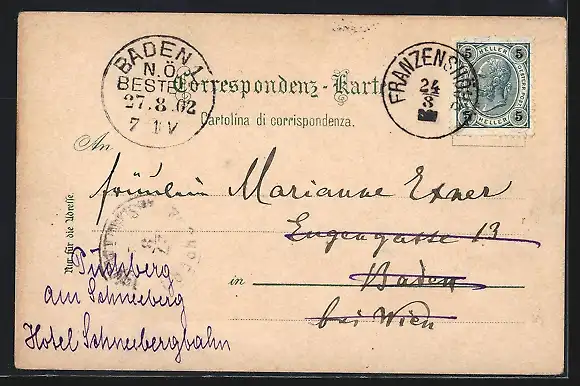 BADEN 1
N.Ö.
BESTELLT
27.8.02
7-1V
FRANZENSHÖHE
24
8
5 HELLER 5
5 HELLER 5
Correspondenz-Karte
Cartolina di corrispondenza.
An
Fräulein Marianne Exner
Eugengasse 13
in Baden
bei Wien
Nur für die Adresse.
Puchberg
am Schneeberg
Hotel Schneebergbahn